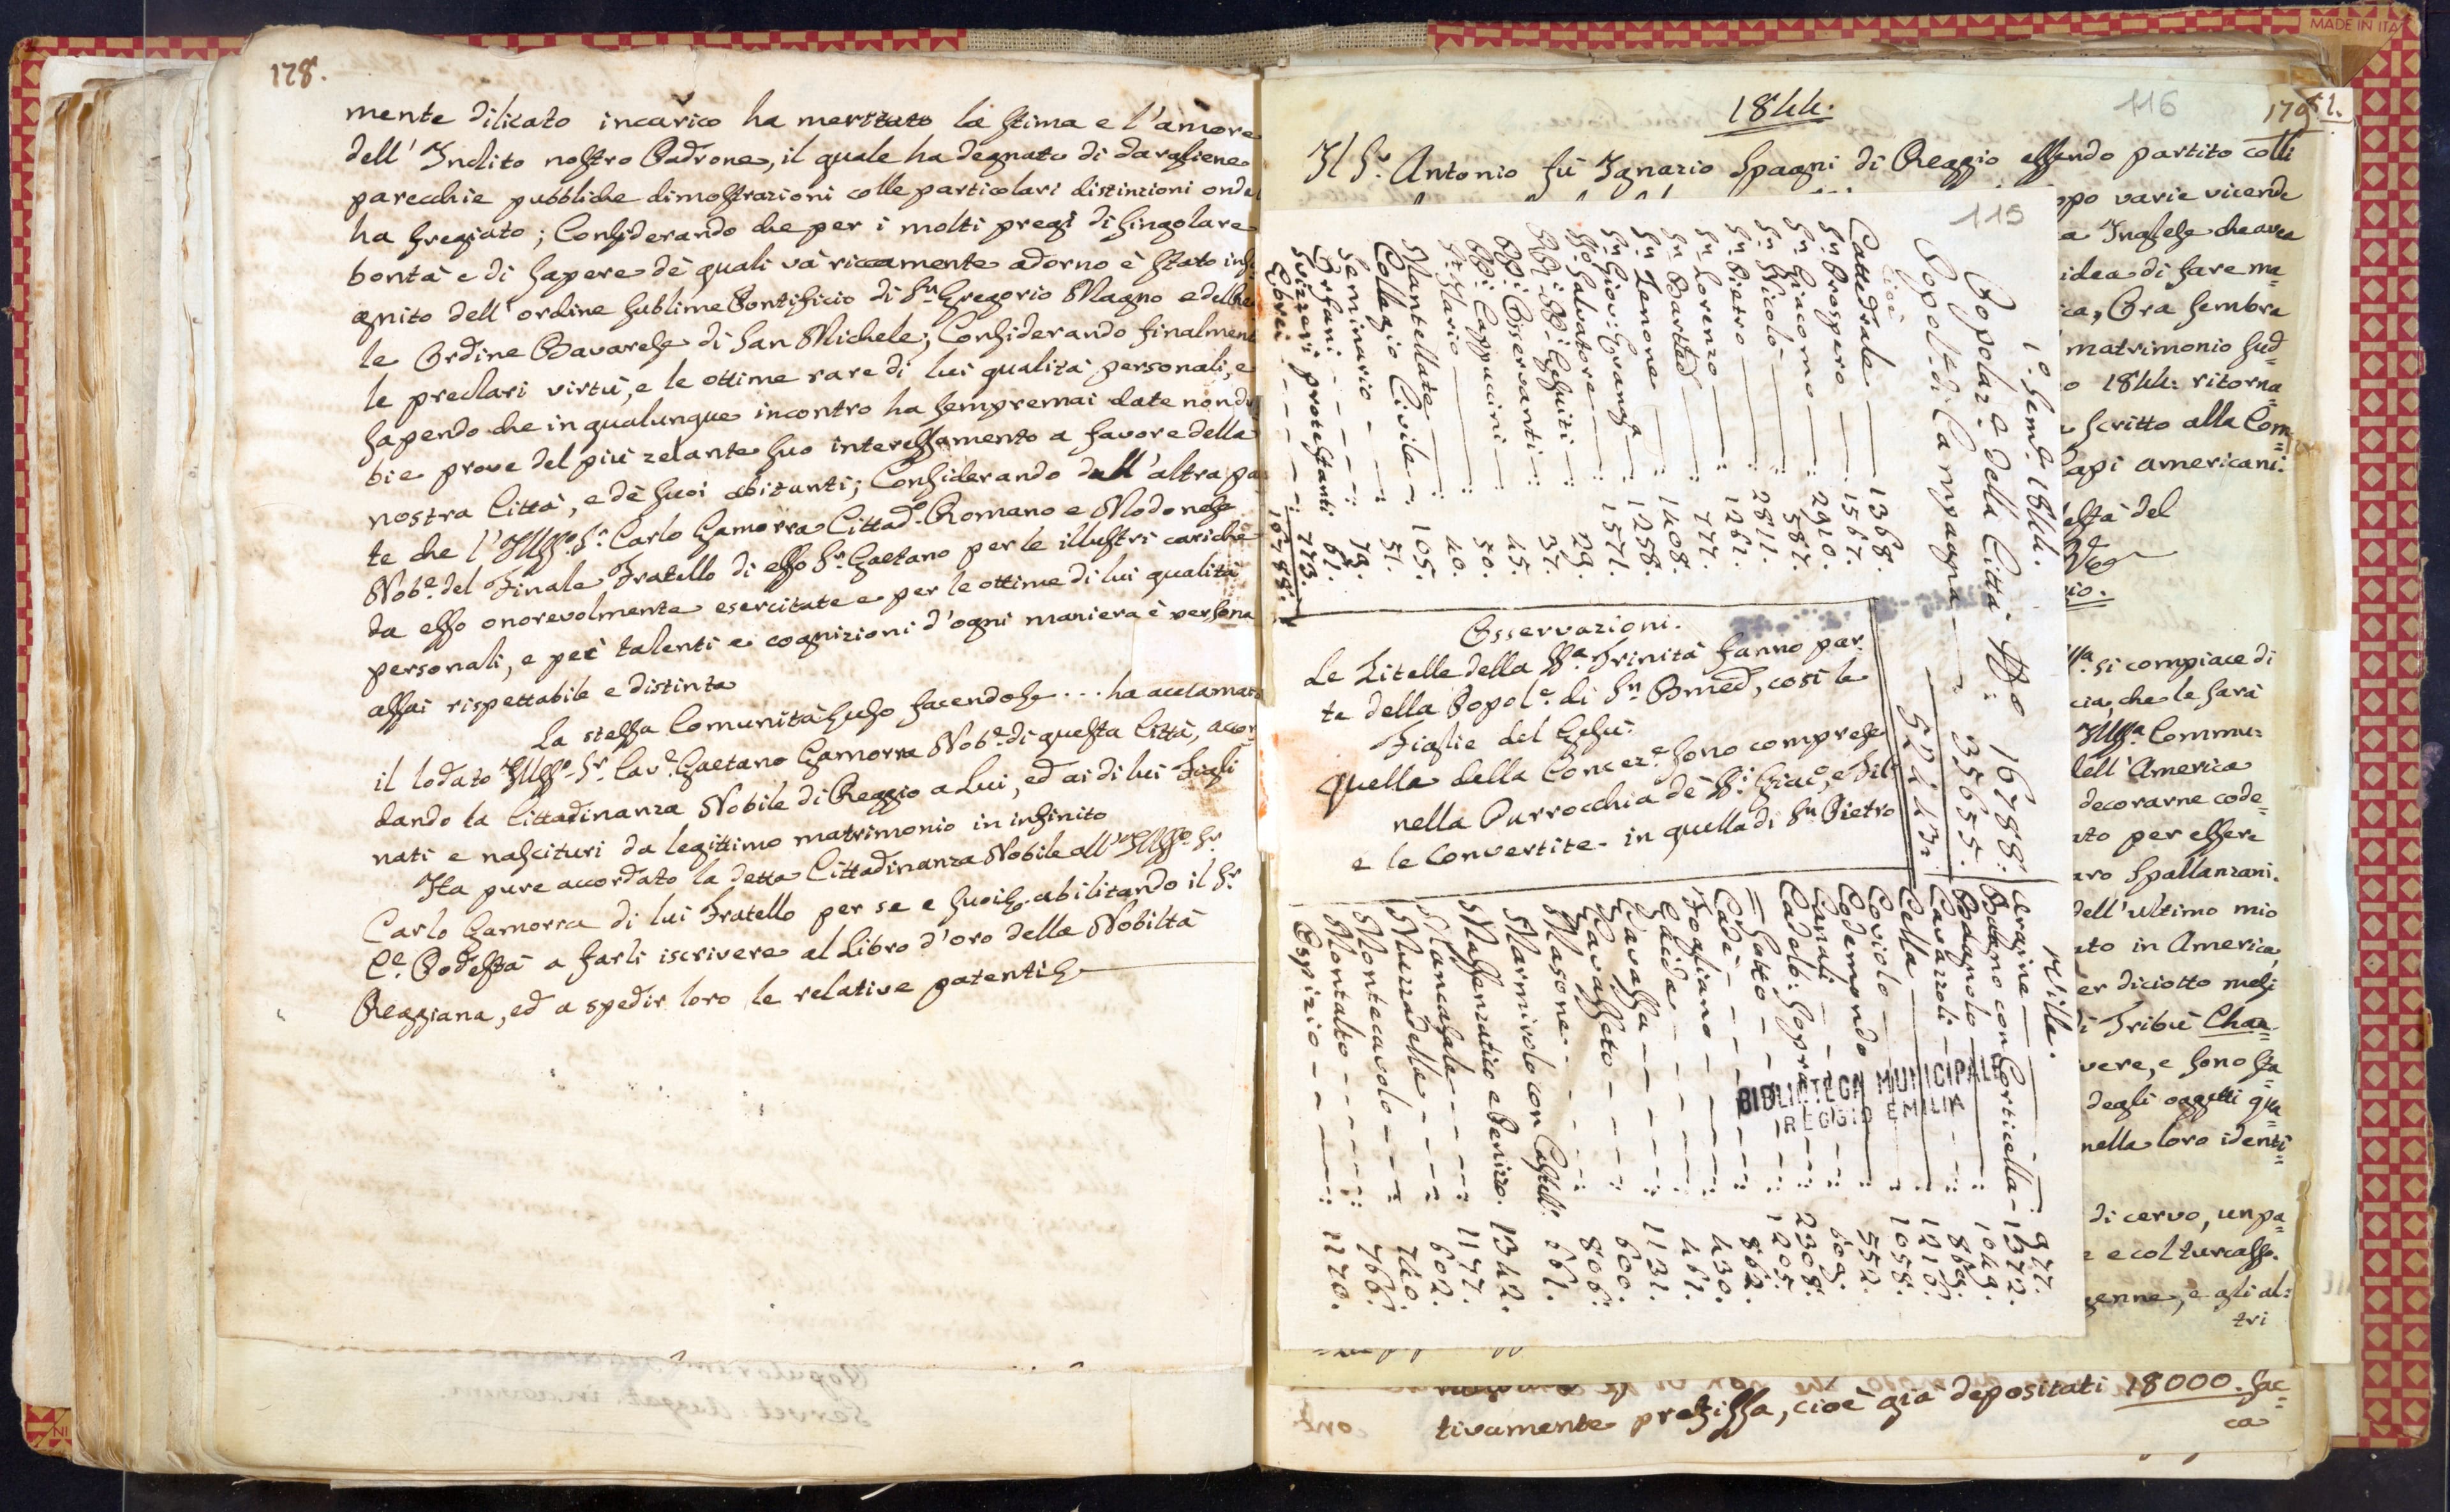 178.
mente dilicato incarico ha meritato la stima e l'amore
dell' Inclito nostro Padrone, il quale ha degnato di dargliene
parecchie pubbliche dimostrazioni colle particolari distinzioni onde
ha fregiato; Considerando che per i molti pregi di singolare
bontà e di sapere de' quali và riccamente adorno è stato insi
gnito dell' ordine sublime Pontificio di Sn Gregorio Magno e del
le Ordine Bavarese di San Michele; Considerando finalmen
le preclari virtù, e le ottime rare di lui qualità personali, e
sapendo che in qualunque incontro ha sempremai date non du
bie prove del più zelante suo interessamento a favore della
nostra Città, e de' suoi abitanti; Considerando dall' altra pa
te che l' Illmo Sr. Carlo Gamorra Cittado. Romano e Modonese
Nobe. del Finale Fratello di esso Sr. Gaetano per le illustri cariche
da esso onorevolmente esercitate e per le ottime di lui qualità
personali, e pei talenti e cognizioni d'ogni maniera è persona
assai rispettabile e distinta
La stessa Comunità facendosi ... ha acclamato
il lodato Illmo. Sr. Cave. Gaetano Gamorra Nobe. di questa Città, accor
dando la Cittadinanza Nobile di Reggio a Lui, ed ai di lui Figli
nati e nascituri da legittimo matrimonio in infinito
Ha pure accordato la detta Cittadinanza Nobile all' Illmo Sr
Carlo Gamorra di lui Fratello per se e suoi abilitando il Sr.
Ce. Podestà a farli iscrivere al Libro d'oro della Nobiltà
Reggiana, ed a spedir loro le relative patenti
1844.
116
179
Il Sr. Antonio fù Ignazio Spagni di Reggio essendo partito colli
opo varie vicende
a Inglese che avea
idea di fare ma=
ca, Ora sembra
matrimonio sud=
o 1844: ritorna=
scritto alla Com=
capi americani:
està del
io.
si compiace di
cia, che le sarà
Illma. Commu:
dell' America
decorarne code=
ato per essere
aro Spallanzani.
dell' ultimo mio
ato in America
er diciotto mesi
i Tribù Chac=
vere, e sono sta=
degli oggetti qua=
nella loro identi=
di cervo, un pa=
e col turcasso.
penne, e gli al:
tri
tivamente prefissa, cioè già depositati 18000. sac=
ca
115
1o. Seme. 1844.
Popolaze. della Città. No 16788.
Popole. di Campagna 35655.
52443.
Cioè
Cattedrale 1368.
Sn Prospero 1567.
Sn Giacomo 587.
Sn Nicolò 2910.
Sn Pietro 2811.
Sn Lorenzo 1261.
Sn Bartto 777.
Sn Zenone 1408.
Sn Giov: Evanga 1258.
Sn Salvatore 1571.
PP.i Gesuiti 29.
PP:i Osservanti 37.
PP:i Cappuccini 45.
St Ilario 50.
Mantellate 40.
Collegio Civile 105.
Seminario 51.
Orfani 79.
Svizzeri protestanti 61.
Ebrei 773.
16788.
Osservazioni.
Le Zitelle della SSa. Trinità fanno par=
te della Popole. di Sn Bmeo, così le
Figlie del Gesù.
Quelle della Conceze. sono comprese
nella Parrocchia de' SS.i Giaco, e Fil:
e le Convertite in quella di Sn Pietro
Ville.
Argine 977.
Bobano con Corticella 1372.
1049.
Cavazzoli 869.
Cella 1210.
Coviolo 1058.
Codemondo 552.
Canali 609.
Cadelb: Sopra 2308.
= Sotto 1205.
Cadè 862.
Fogliano 430.
Gaida 461.
Gavassa 1131.
Gavasseto 600.
Masone 806.
Marmirolo con Castell: 661.
Massenzatico e Perizzo. 1342.
Mancasale 1177.
Murzadella 602.
Montecavolo 740.
Montalto 766.
Ospizio 1170.
BIBLIOTECA MUNICIPALE
REGGIO EMILIA
MADE IN ITA